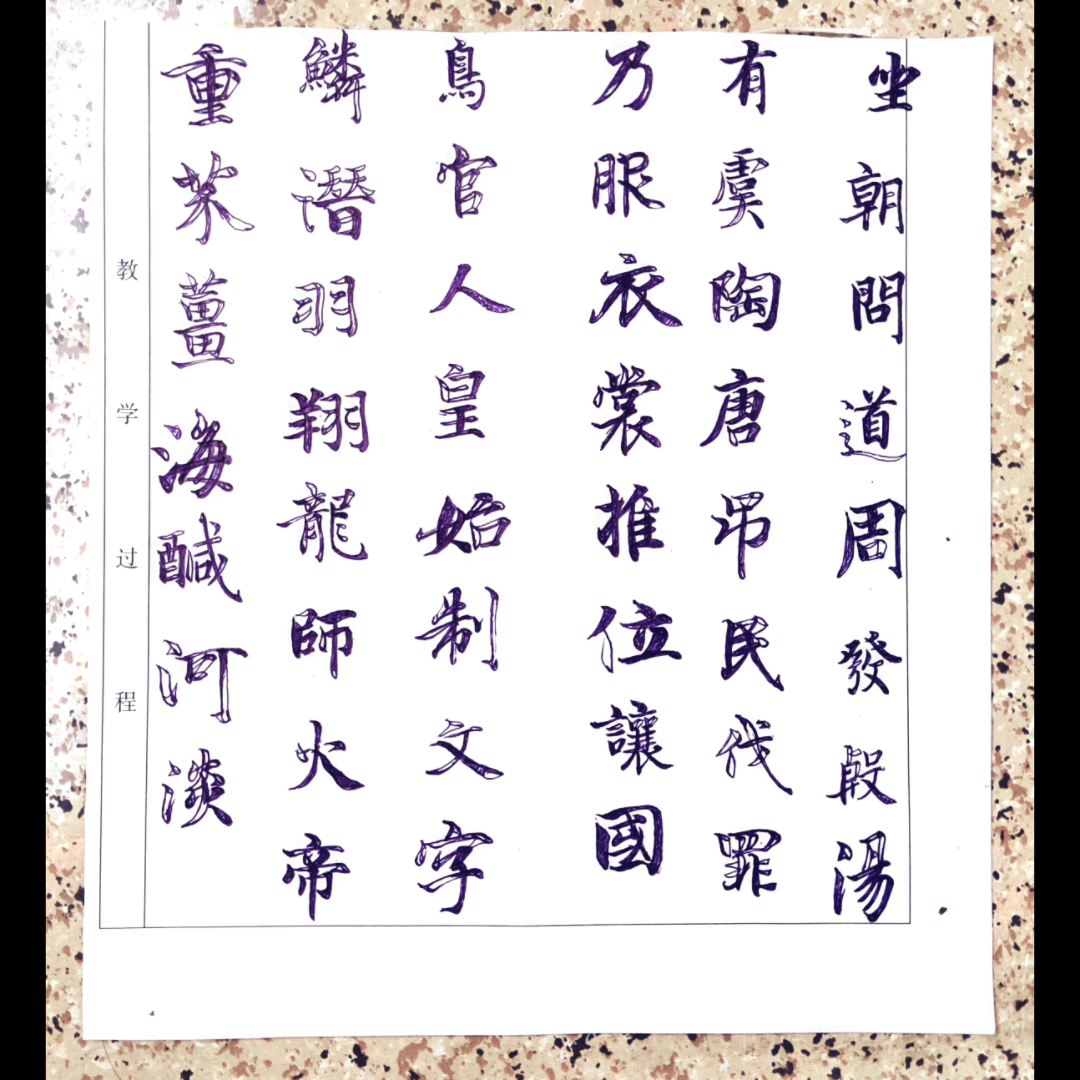 教学过程
重芥薑海鹹河淡
鱗潛羽翔龍師火帝
鳥官人皇始制文字
乃服衣裳推位讓國
有虞陶唐吊民伐罪
坐朝問道周發殷湯